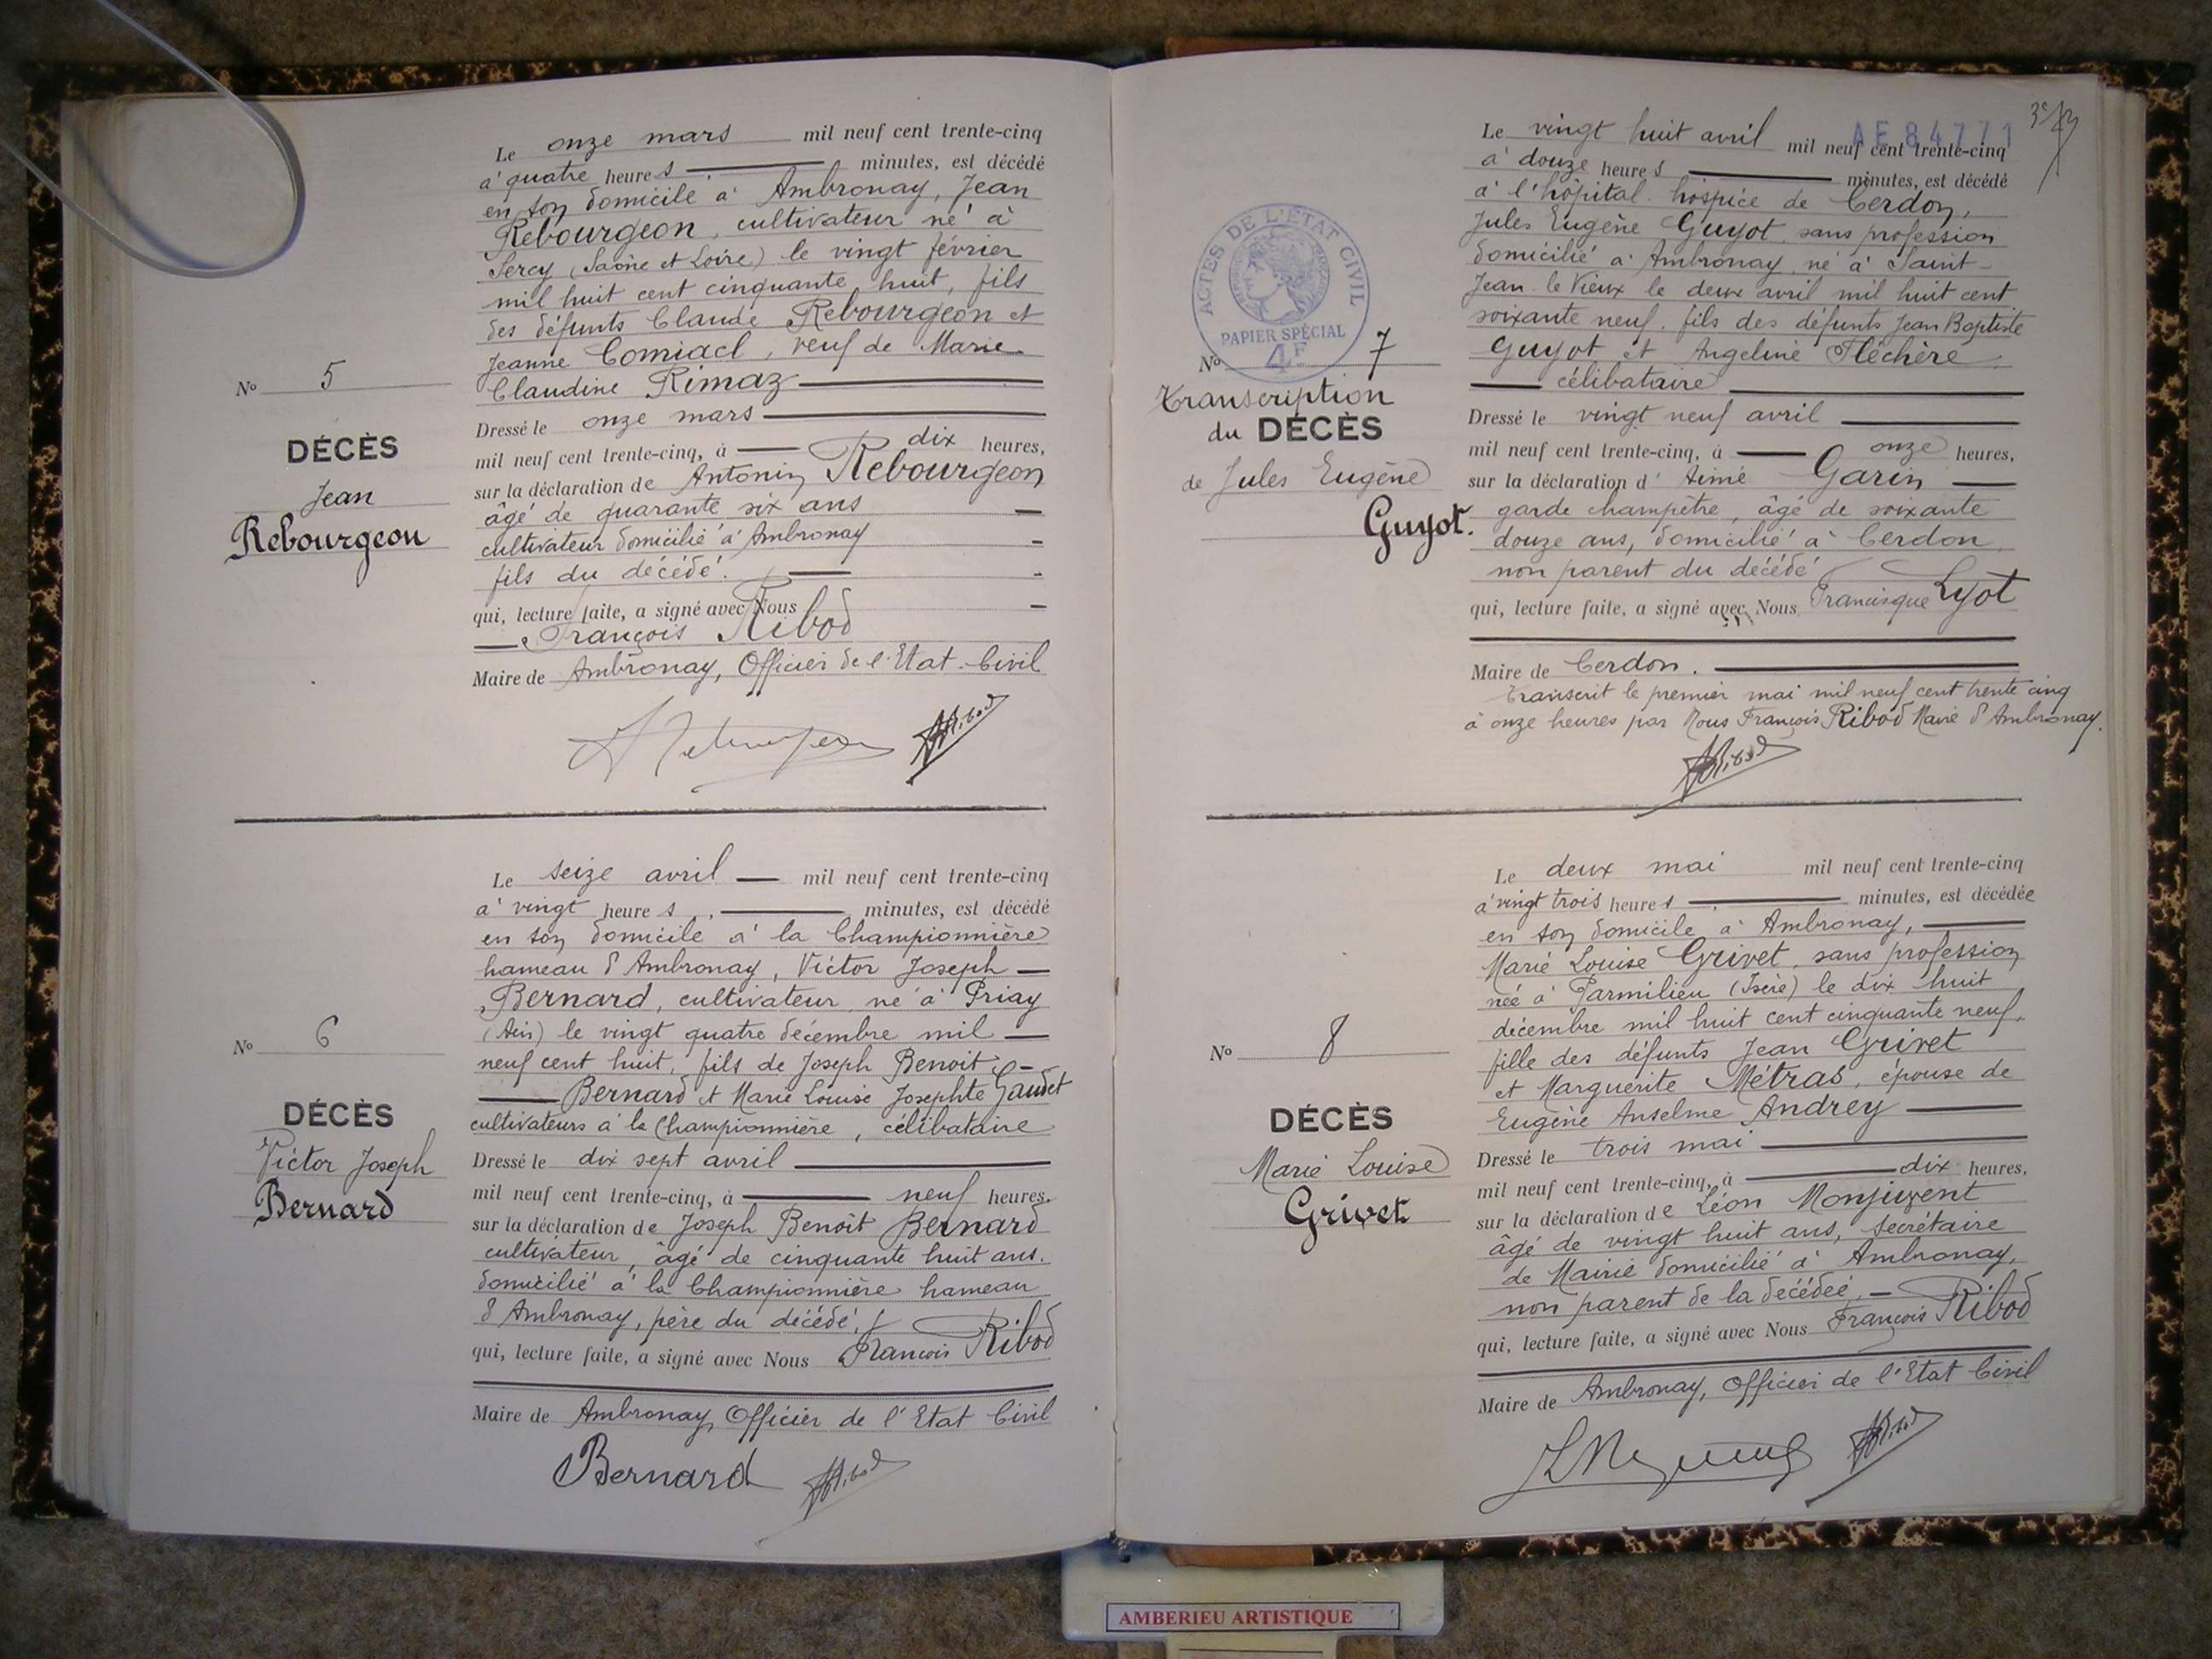 Le onze mars mil neuf cent trente-cinq
à quatre heures minutes, est décédé
en son domicile à Ambronay, Jean
Rebourgeon, cultivateur né à
Sercy (Saône et Loire) le vingt février
mil huit cent cinquante huit, fils
des défunts Claude Rebourgeon et
Jeanne Comiacl, veuf de Marie
Claudine Rimaz
Dressé le onze mars
mil neuf cent trente-cinq, à dix heures,
sur la déclaration de Antonin Rebourgeon
âgé de quarante six ans
cultivateur domicilié à Ambronay
fils du décédé.
qui, lecture faite, a signé avec Nous
François Ribod
Maire de Ambronay, Officier de l'Etat-Civil
No 5
DÉCÈS
Jean
Rebourgeon
Le seize avril mil neuf cent trente-cinq
à vingt heures, minutes, est décédé
en son domicile à la Championnière
hameau d'Ambronay, Victor Joseph
Bernard, cultivateur, né à Priay
(Ain) le vingt quatre décembre mil
neuf cent huit, fils de Joseph Benoit
Bernard et Marie Louise Josephte Gaudet
cultivateurs à la Championnière, célibataire
Dressé le dix sept avril
mil neuf cent trente-cinq, à neuf heures,
sur la déclaration de Joseph Benoit Bernard
cultivateur, âgé de cinquante huit ans.
domicilié à la Championnière hameau
d'Ambronay, père du décédé,
qui, lecture faite, a signé avec Nous François Ribod
Maire de Ambronay, Officier de l'Etat Civil
Bernard Ribod
No 6
DÉCÈS
Victor Joseph
Bernard
AE 84771
Le vingt huit avril mil neuf cent trente-cinq
à douze heures minutes, est décédé
à l'hôpital-hospice de Cerdon,
Jules Eugène Guyot, sans profession
domicilié à Ambronay, né à Saint-
Jean-le-Vieux le deux avril mil huit cent
soixante neuf, fils des défunts Jean Baptiste
Guyot et Angeline Fléchère
célibataire
Dressé le vingt neuf avril
mil neuf cent trente-cinq, à onze heures,
sur la déclaration d' Aimé Garin
garde champêtre, âgé de soixante
douze ans, domicilié à Cerdon
non parent du décédé
qui, lecture faite, a signé avec Nous Francisque Lyot
Maire de Cerdon.
Transcrit le premier mai mil neuf cent trente cinq
à onze heures par Nous François Ribod Maire d'Ambronay.
Ribod
ACTES DE L'ÉTAT CIVIL
PAPIER SPÉCIAL
4F
No 7
Transcription
du DÉCÈS
de Jules Eugène
Guyot.
Le deux mai mil neuf cent trente-cinq
à vingt trois heures minutes, est décédée
en son domicile à Ambronay,
Marie Louise Grivet, sans profession
née à Parmilieu (Isère) le dix huit
décembre mil huit cent cinquante neuf,
fille des défunts Jean Grivet
et Marguerite Métras, épouse de
Eugène Anselme Andrey
Dressé le trois mai
mil neuf cent trente-cinq, à dix heures,
sur la déclaration de Léon Monjuvent
âgé de vingt huit ans, secrétaire
de Mairie domicilié à Ambronay,
non parent de la décédée,
qui, lecture faite, a signé avec Nous François Ribod
Maire de Ambronay, Officier de l'Etat Civil
Ribod
No 8
DÉCÈS
Marie Louise
Grivet
AMBERIEU ARTISTIQUE